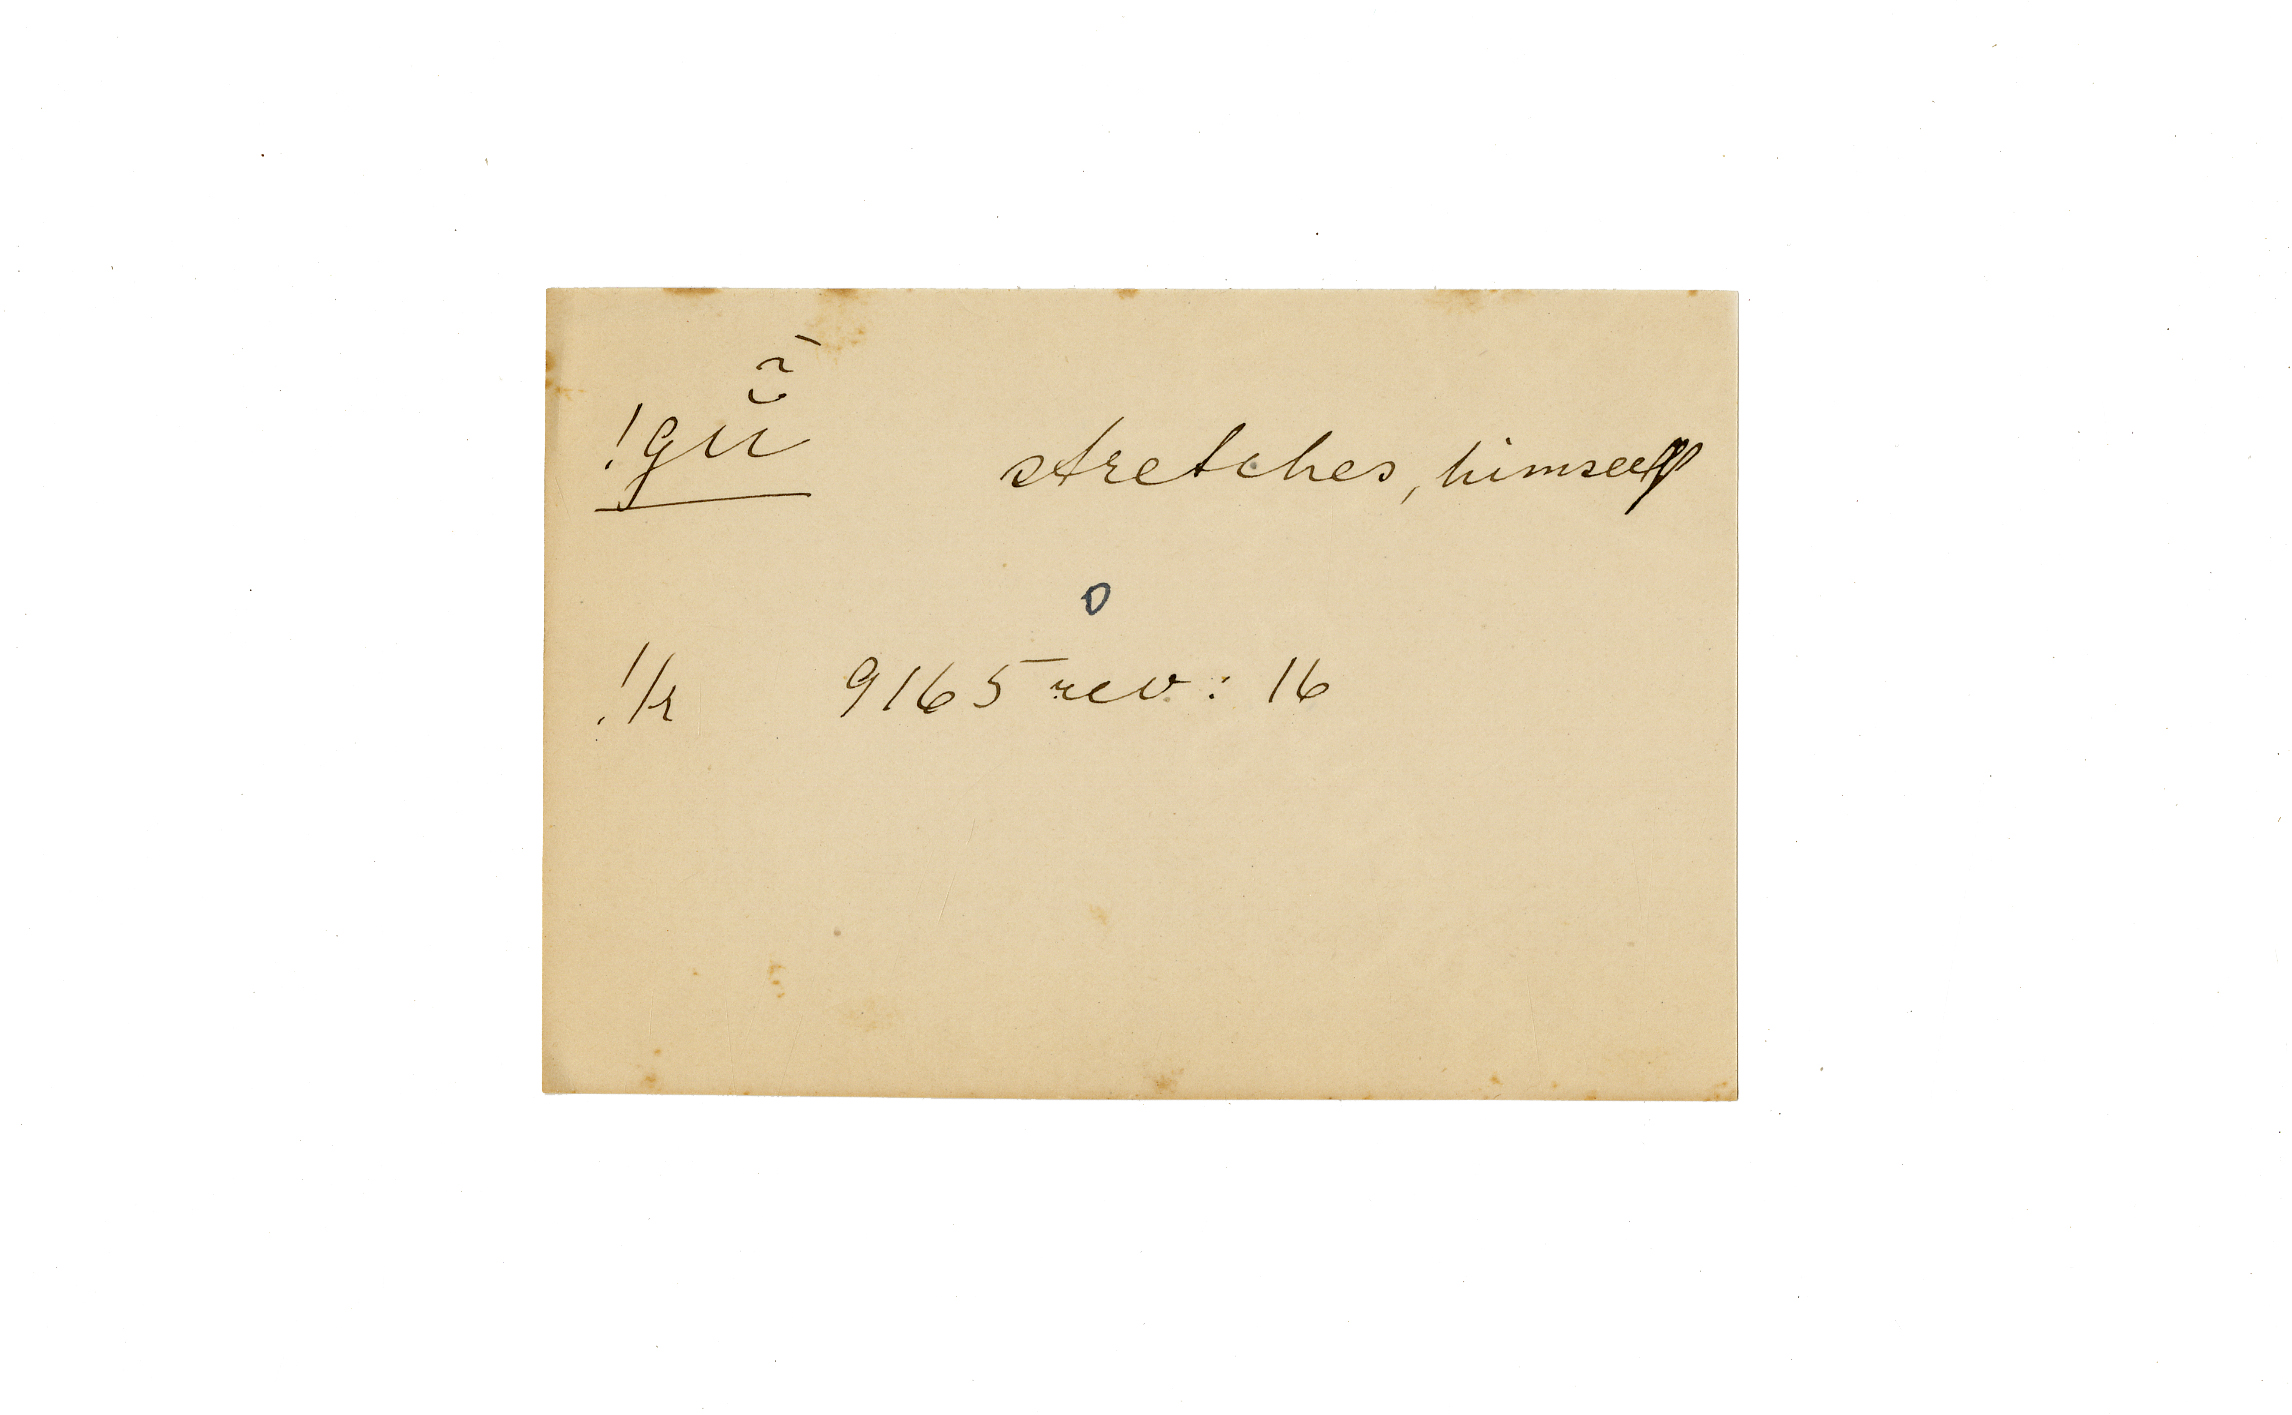 !gŭ̃́ stretches, himself
o
!k 9165 rev: 16